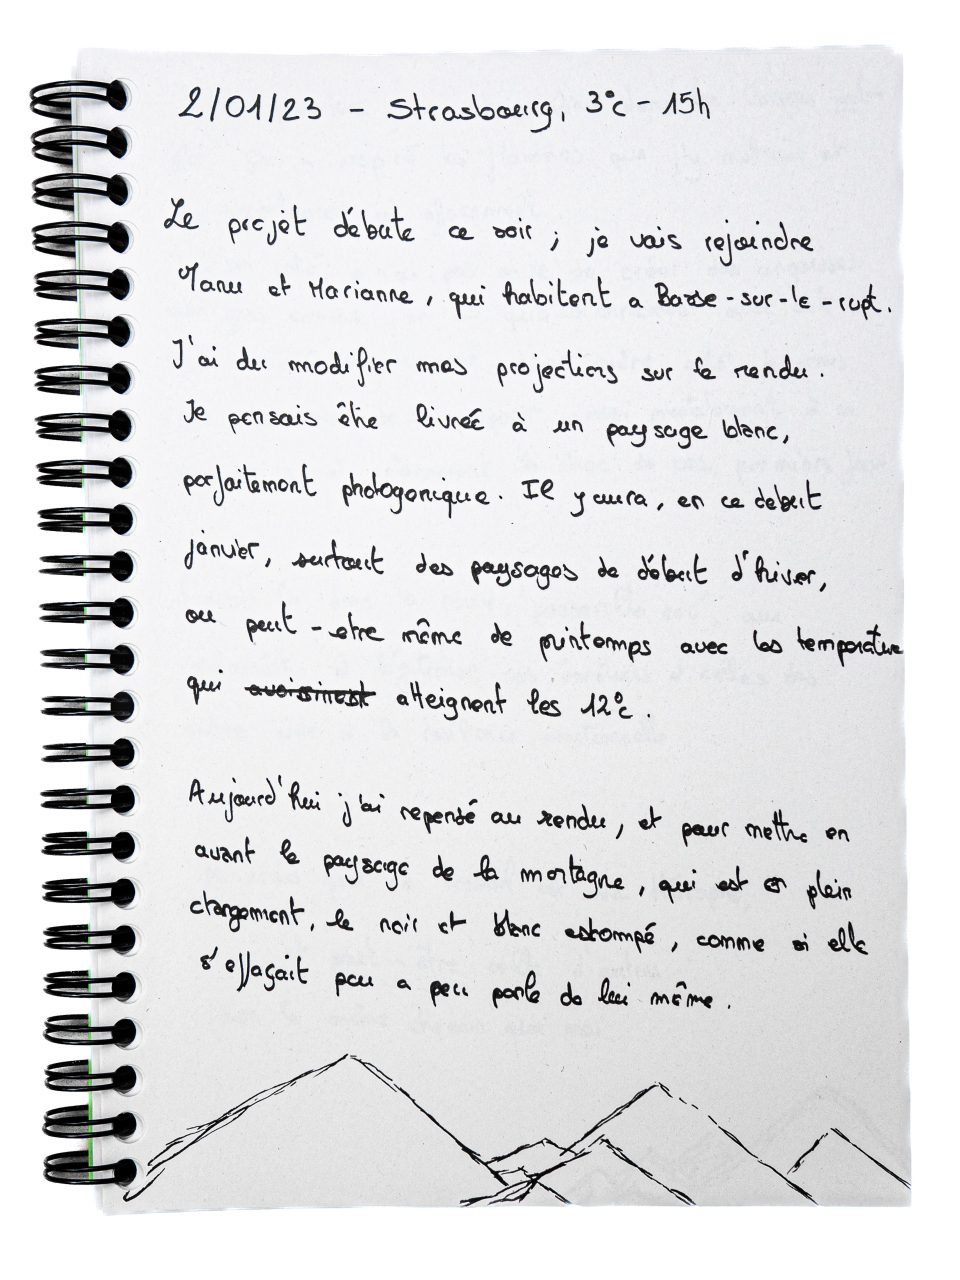 2/01/23 - Strasbourg, 3°c - 15h
Le projet débute ce soir ; je vais rejoindre
Manu et Marianne, qui habitent a Basse-sur-le-rupt.
J'ai du modifier mes projections sur le rendu.
Je pensais être livrée à un paysage blanc,
parfaitement photogénique. Il y aura, en ce debut
janvier, surtout des paysages de début d'hiver,
ou peut-etre même de printemps avec les temperature
qui avoisinent atteignent les 12°c.
Aujourd'hui j'ai repensé au rendu, et pour mettre en
avant le paysage de la montagne, qui est en plein
changement, le noir et blanc estompé, comme si elle
s'effaçait peu a peu parle de lui même.